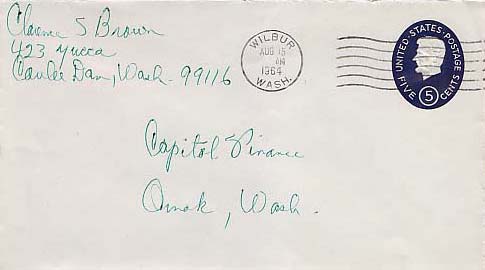 Clarence S Brown
423 Yucca
Coulee Dam, Wash - 99116
WILBUR
AUG 15
AM
1964
WASH.
UNITED·STATES·POSTAGE
FIVE 5 CENTS
Capitol Finance
Omak, Wash.